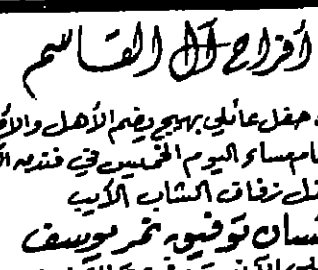 أفراح آل القاسم
حفل عائلي بهيج يضم الأهل والأ
مساء اليوم الخميس في فندق ا
زفاف الشاب الأديب
توفيق نمر يوسف